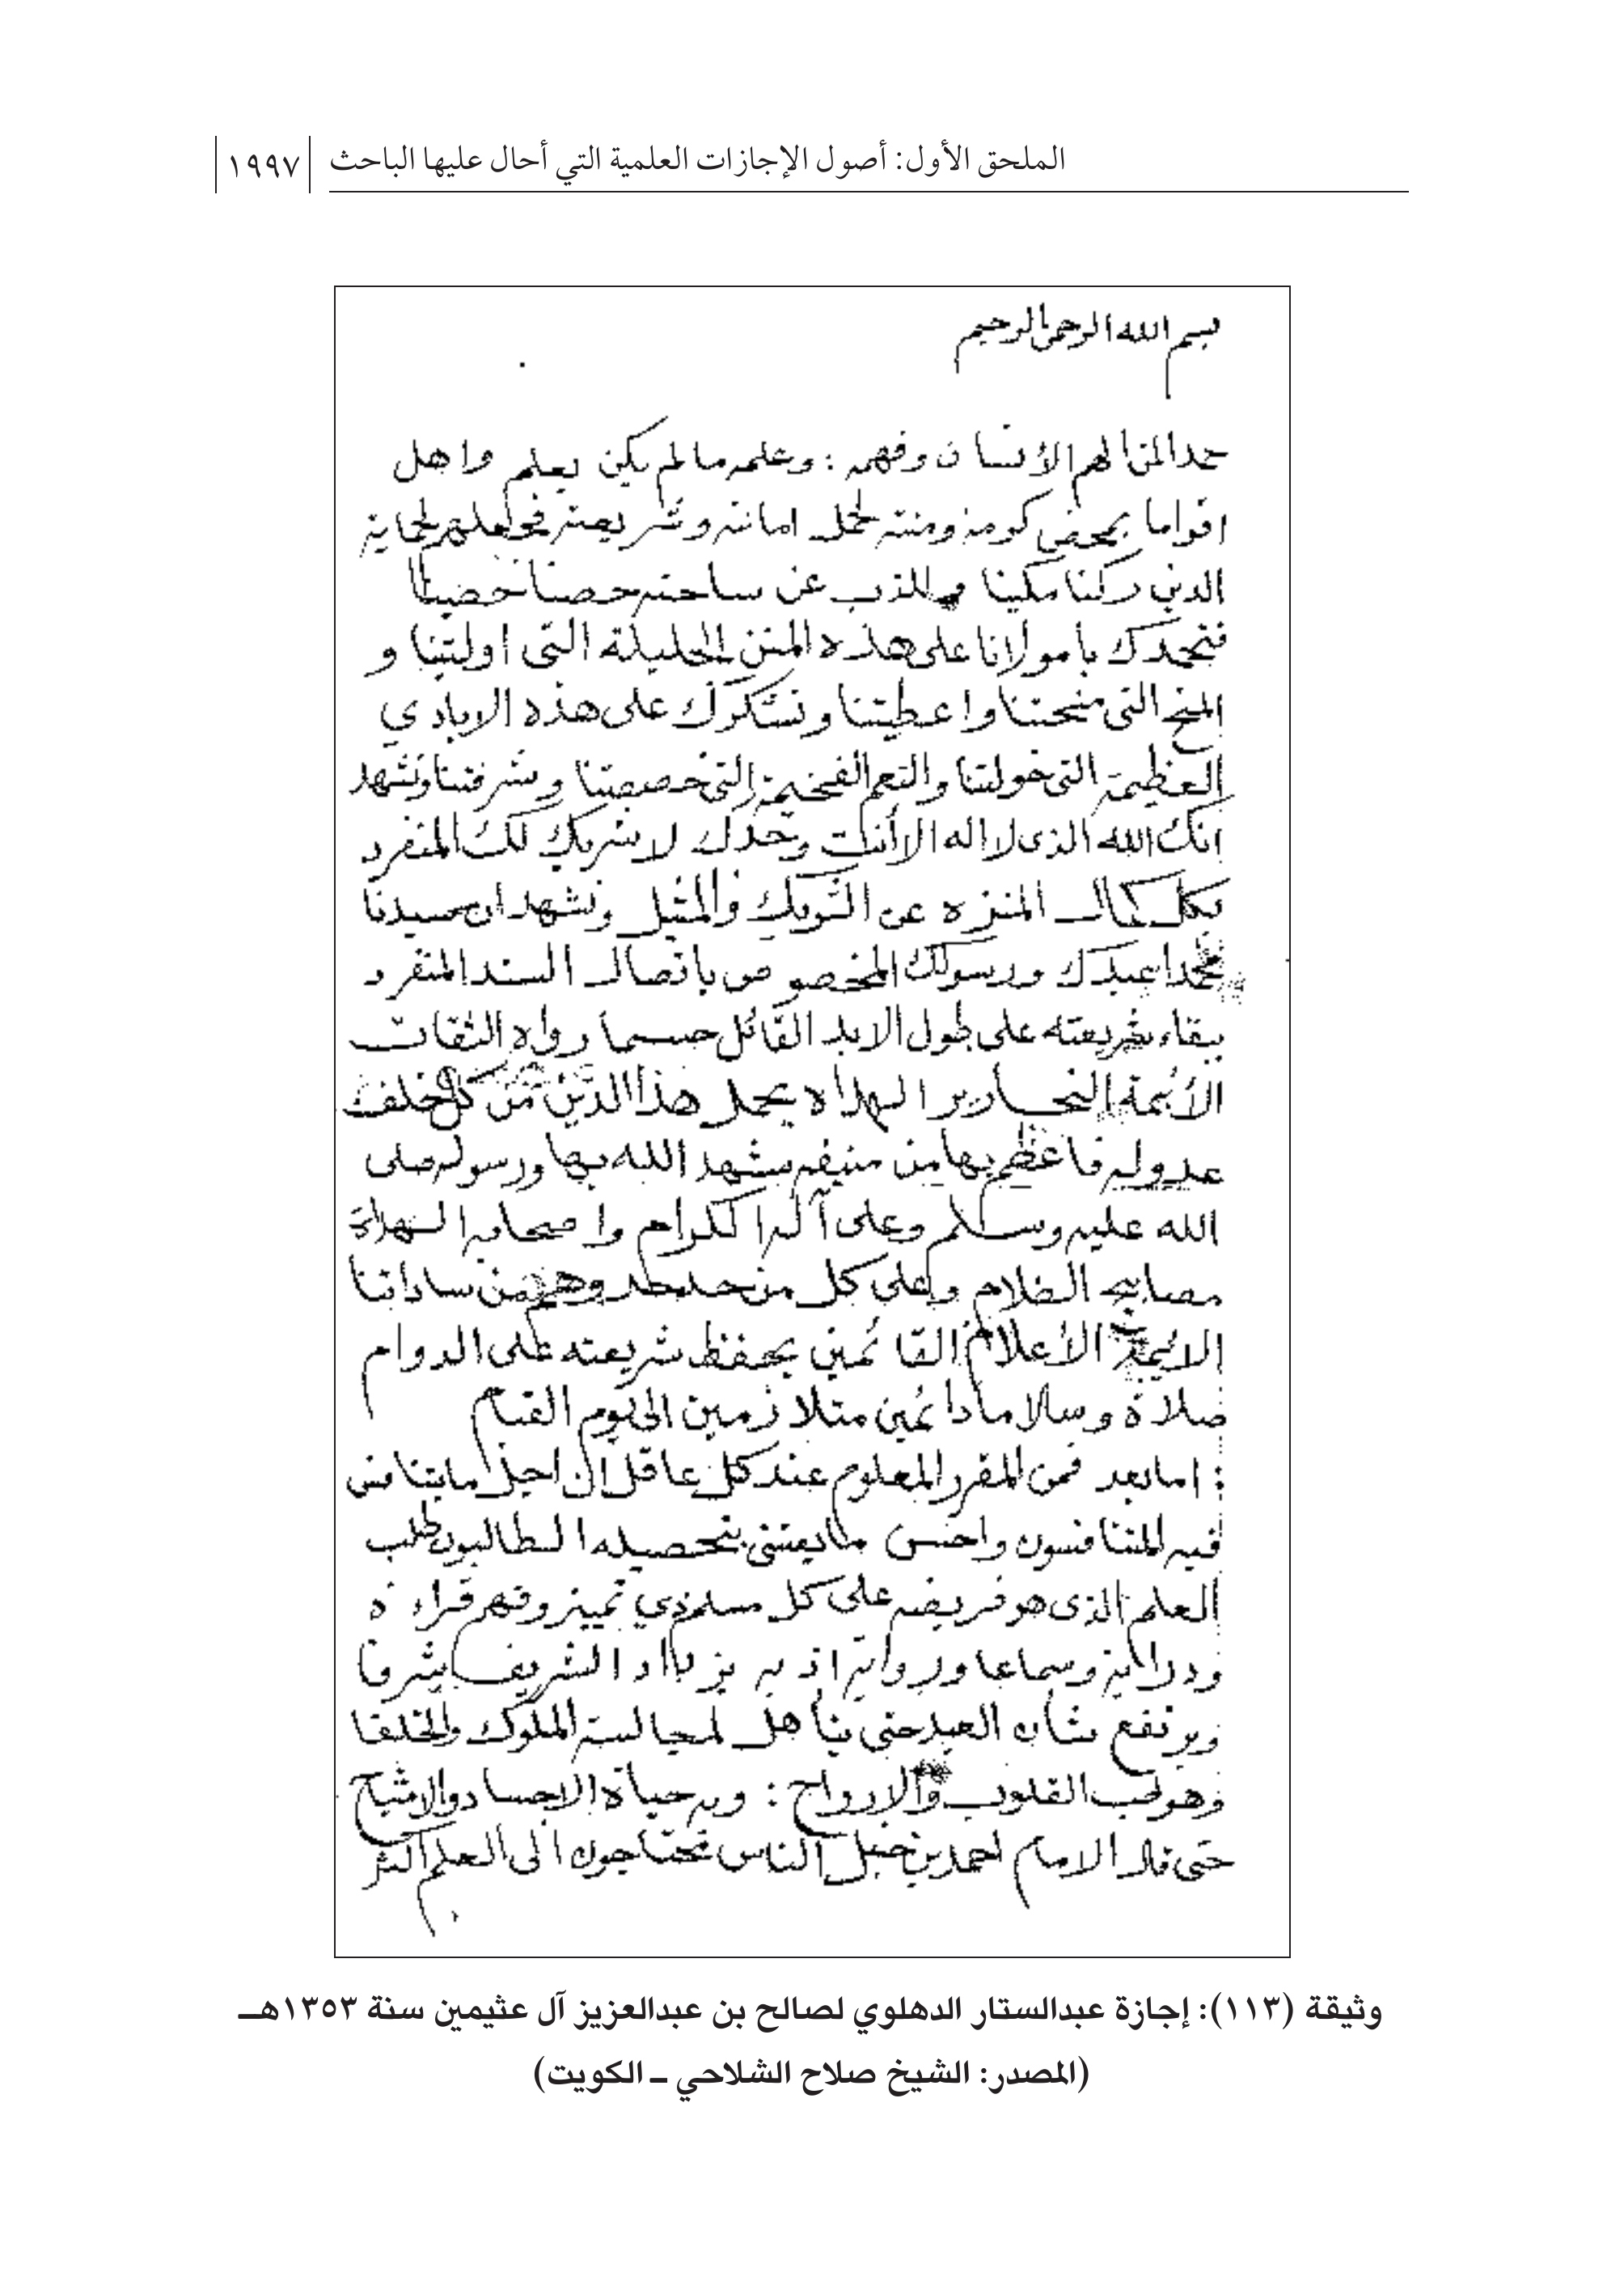 الملحق الأول: أصول الإجازات العلمية التي أحال عليها الباحث ١٩٩٧
بسم الله الرحمن الرحيم
حمدا لمن الهم الأنسان وفهمه : وعلمه ما لم يكن يعلم واهل
اقواما بمحض كرمه ومنته لحمل امانته وشريعته فجعلهم لحماية
الدين ركنا مكينا وللذب عن ساحته حصنا حصينا
فنحمدك يا مولانا على هذه المنن الجليلة التى اوليتنا و
المنح التى منحتنا واعطيتنا ونشكرك على هذه الايادي
العظيمة التى خولتنا والنعم الفخيمة التى خصصتنا وشرفتنا ونشهد
انك الله الذى لا اله الا أنت وحدك لا شريك لك المنفرد
بكل كمال المنزه عن الشريك والمثيل ونشهد ان سيدنا
محمدا عبدك ورسولك المخصوص باتصال السند المنفرد
ببقاء شريعته على طول الابد القائل حسبما رواه الثقات
الأئمة النحارير الهداه يحمل هذا الدين من كل خلف
عدوله فاعظم بها من منيفه شهد الله بها ورسوله صلى
الله عليه وسلم وعلى آله الكرام واصحابه الهداة
مصابيح الظلام وعلى كل من حد وهم من ساداتنا
الائمة الأعلام القائمين بحفظ شريعته على الدوام
صلاة وسلاما دائمين متلازمين الى يوم القيام
: اما بعد فمن المقرر المعلوم عند كل عاقل ان اجل ما يتنافس
فيه المتنافسون واحسن ما يعتنى بتحصيله الطالبون طلب
العلم الذى هو فريضه على كل مسلم ذي تميز وفهم قراءه
ودراية وسماعا ورواية اذ به يزداد الشريف شرفا
ويرتفع شان العبد حتى يتأهل لمجالسة الملوك والخلفا
وهو لب القلوب والارواح : وبه حياة الاجساد والاشباح
حتى قال الامام احمد بن حنبل الناس محتاجون الى العلم اكثر
وثيقة (١١٣): إجازة عبدالستار الدهلوي لصالح بن عبدالعزيز آل عثيمين سنة ١٣٥٣هـ
(المصدر: الشيخ صلاح الشلاحي ـ الكويت)